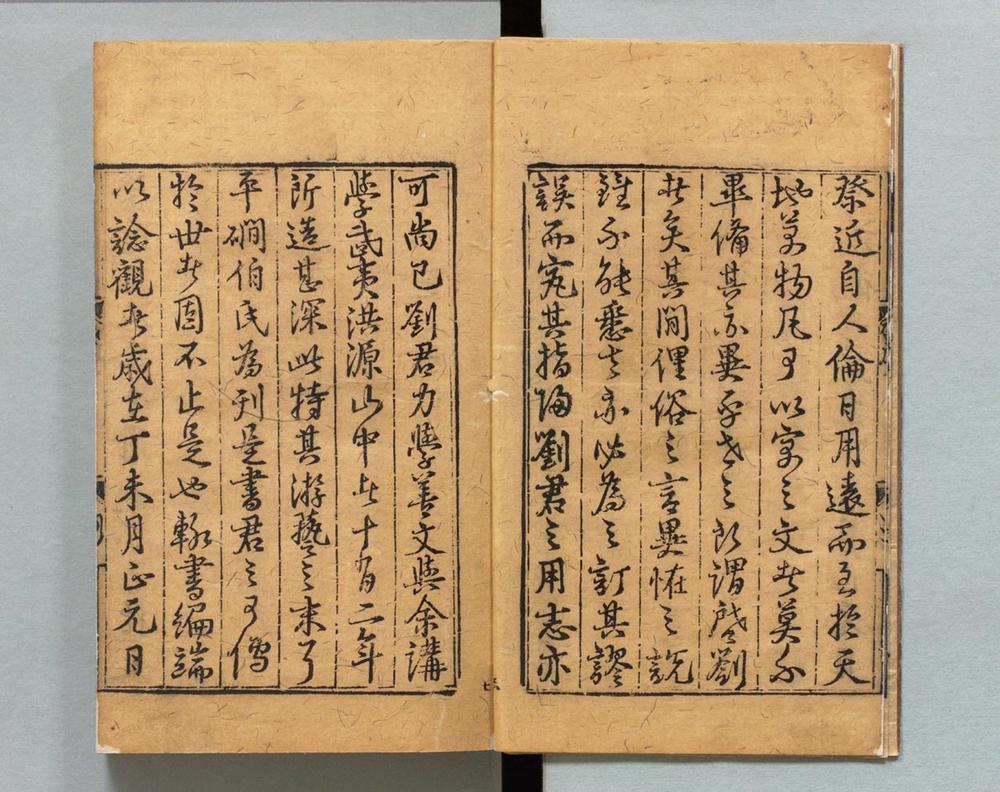 祭近自人倫日用遠而至於天
地萬物凡可以寓之文者莫不
畢備其亦異乎世之所謂啟劄
者矣其間俚俗之言異怪之說
雖不能悉去亦必為之訂其謬
誤而究其指歸劉君之用志亦
可尚已劉君力學善文與余講
學武夷洪源山中者十有二年
所造甚深此特其游藝之末耳
平磵伯氏為刊是書君之可傳
於世者固不止是也輒書編端
以諗觀者歲在丁未月正元日